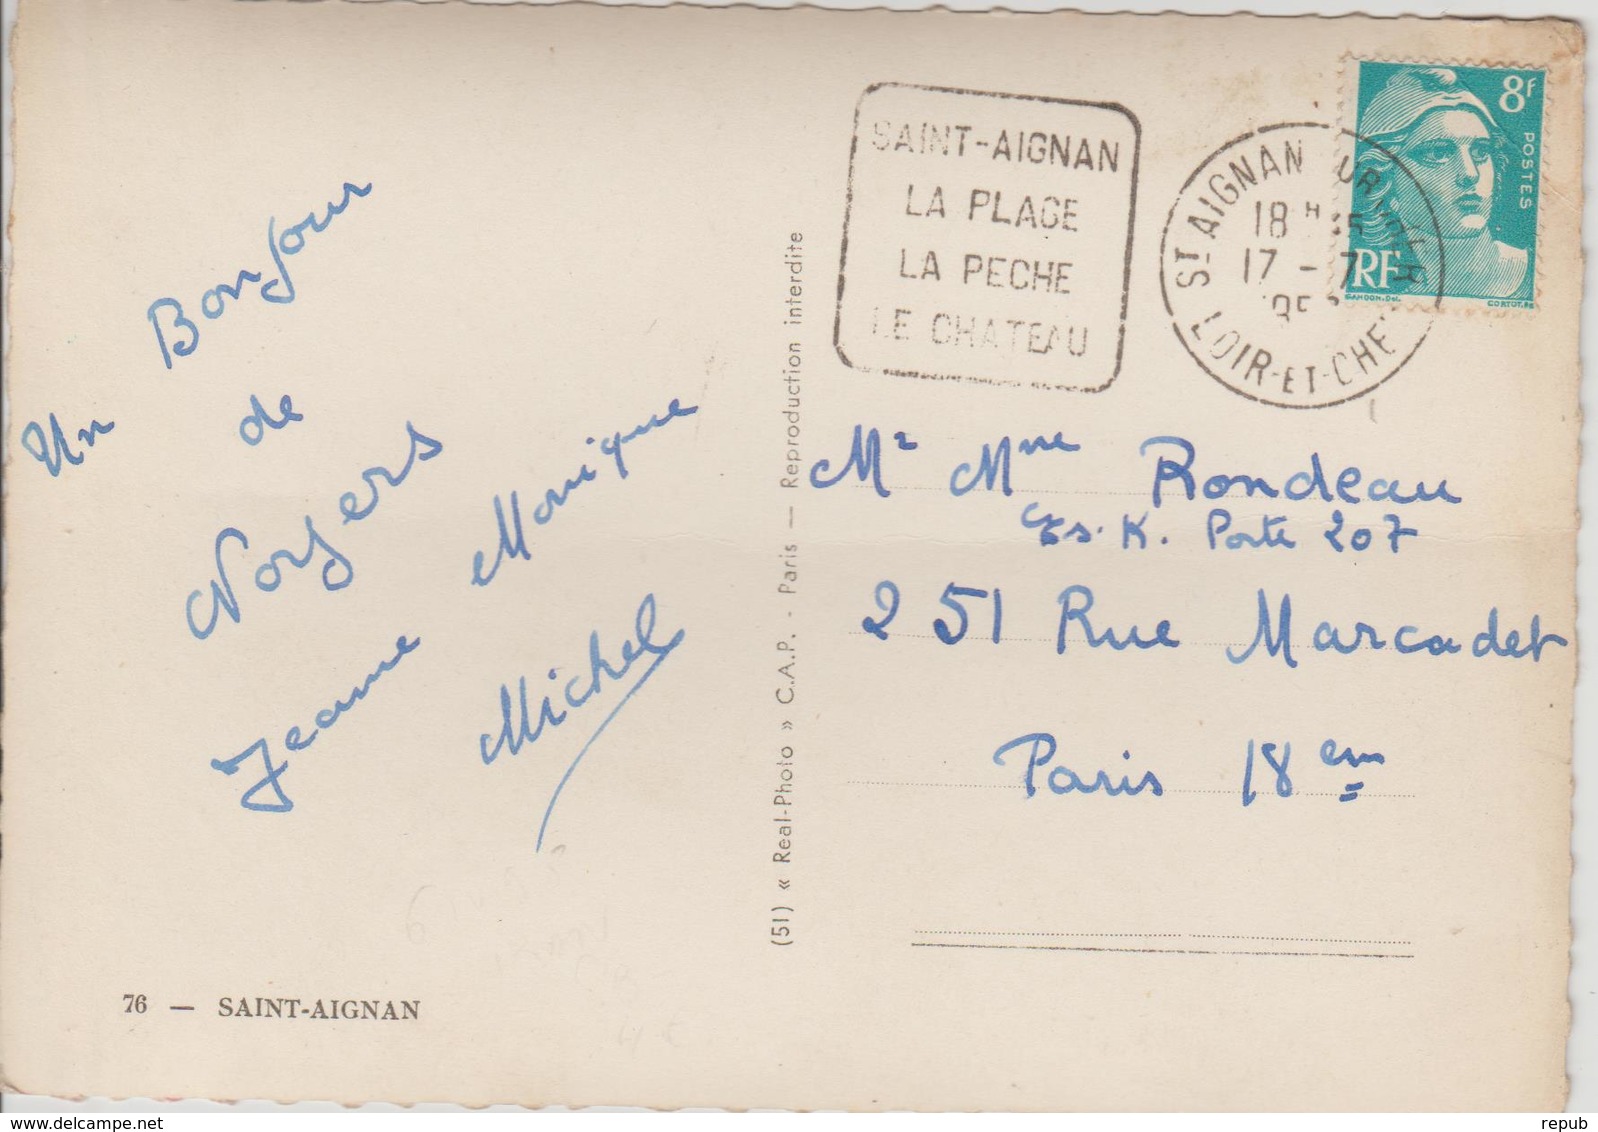 Un Bonjour
de
Noyers
Jeanne Monique
Michel
76 — SAINT-AIGNAN
(51) « Real-Photo » C.A.P. - Paris — Reproduction interdite
SAINT-AIGNAN
LA PLAGE
LA PECHE
LE CHATEAU
ST AIGNAN
18 H
17 - 7
LOIR-ET-CHER
8F
POSTES
RF
GANDON. Del.
CORTOT. SC
Mr Mme Rondeau
Es. K. Porte 207
251 Rue Marcadet
Paris 18 em
www.delcampe.net
repub